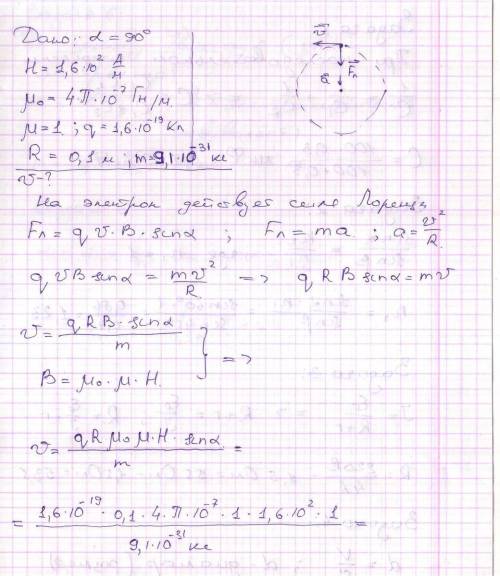 Дано: α = 90°
H = 1,6·10² А/м
μ₀ = 4π·10⁻⁷ Гн/м.
μ = 1 ; q = 1,6·10⁻¹⁹ Кл
R = 0,1 м ; m = 9,1·10⁻³¹ кг
v - ?
v⃗
F⃗л
a⃗
На электрон действует сила Лоренца
Fл = q v·B·sinα ; Fл = ma ; a = v²/R.
q v B sinα = mv²/R => q R B sinα = mv
v = q R B·sinα / m
B = μ₀·μ·H. } =>
v = q R μ₀ μ·H·sinα / m =
= 1,6·10⁻¹⁹·0,1·4·π·10⁻⁷·1·1,6·10²·1 / 9,1·10⁻³¹ кг =